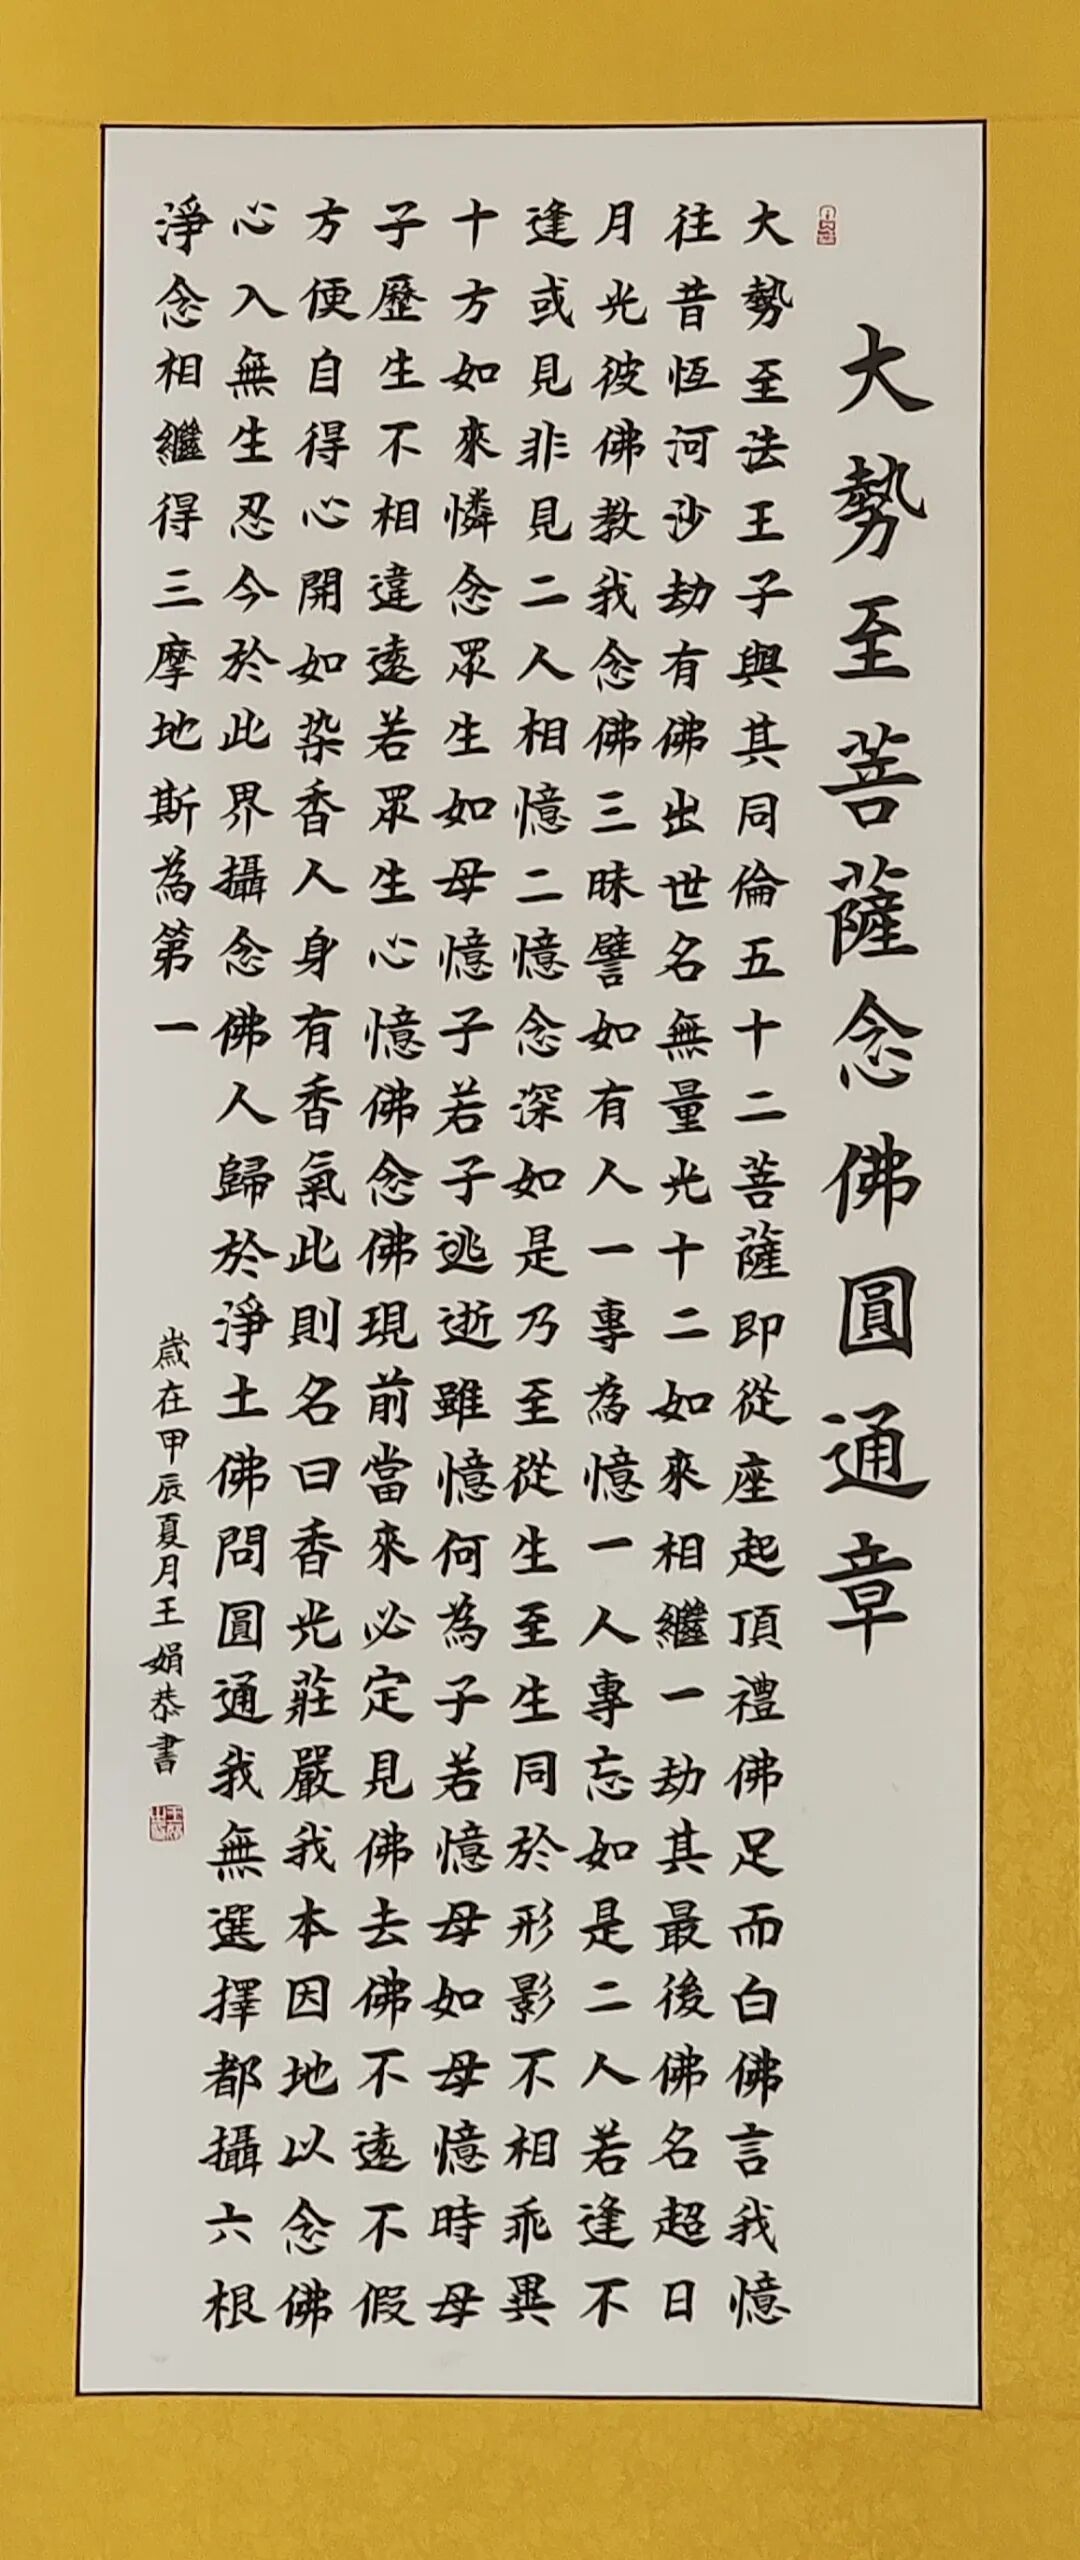 大勢至菩薩念佛圓通章
大勢至法王子與其同倫五十二菩薩即從座起頂禮佛足而白佛言我憶
往昔恆河沙劫有佛出世名無量光十二如來相繼一劫其最後佛名超日
月光彼佛教我念佛三昧譬如有人一專為憶一人專忘如是二人若逢不
逢或見非見二人相憶二憶念深如是乃至從生至生同於形影不相乖異
十方如來憐念眾生如母憶子若子逃逝雖憶何為子若憶母如母憶時母
子歷生不相違遠若眾生心憶佛念佛現前當來必定見佛去佛不遠不假
方便自得心開如染香人身有香氣此則名曰香光莊嚴我本因地以念佛
心入無生忍今於此界攝念佛人歸於淨土佛問圓通我無選擇都攝六根
淨念相繼得三摩地斯為第一
歲在甲辰夏月王娟恭書